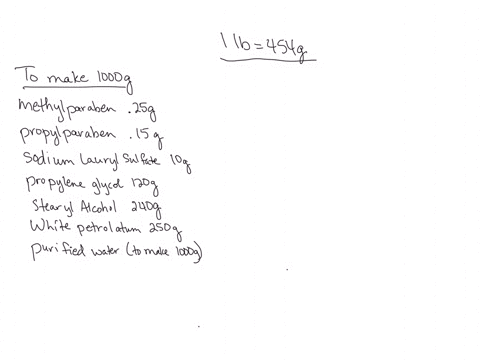 1 lb = 454g
To make 1000g
methylparaben .25g
propylparaben .15g
Sodium Lauryl Sulfate 10g
propylene glycol 120g
Stearyl Alcohol 240g
White petrolatum 250g
purified water (to make 1000g)